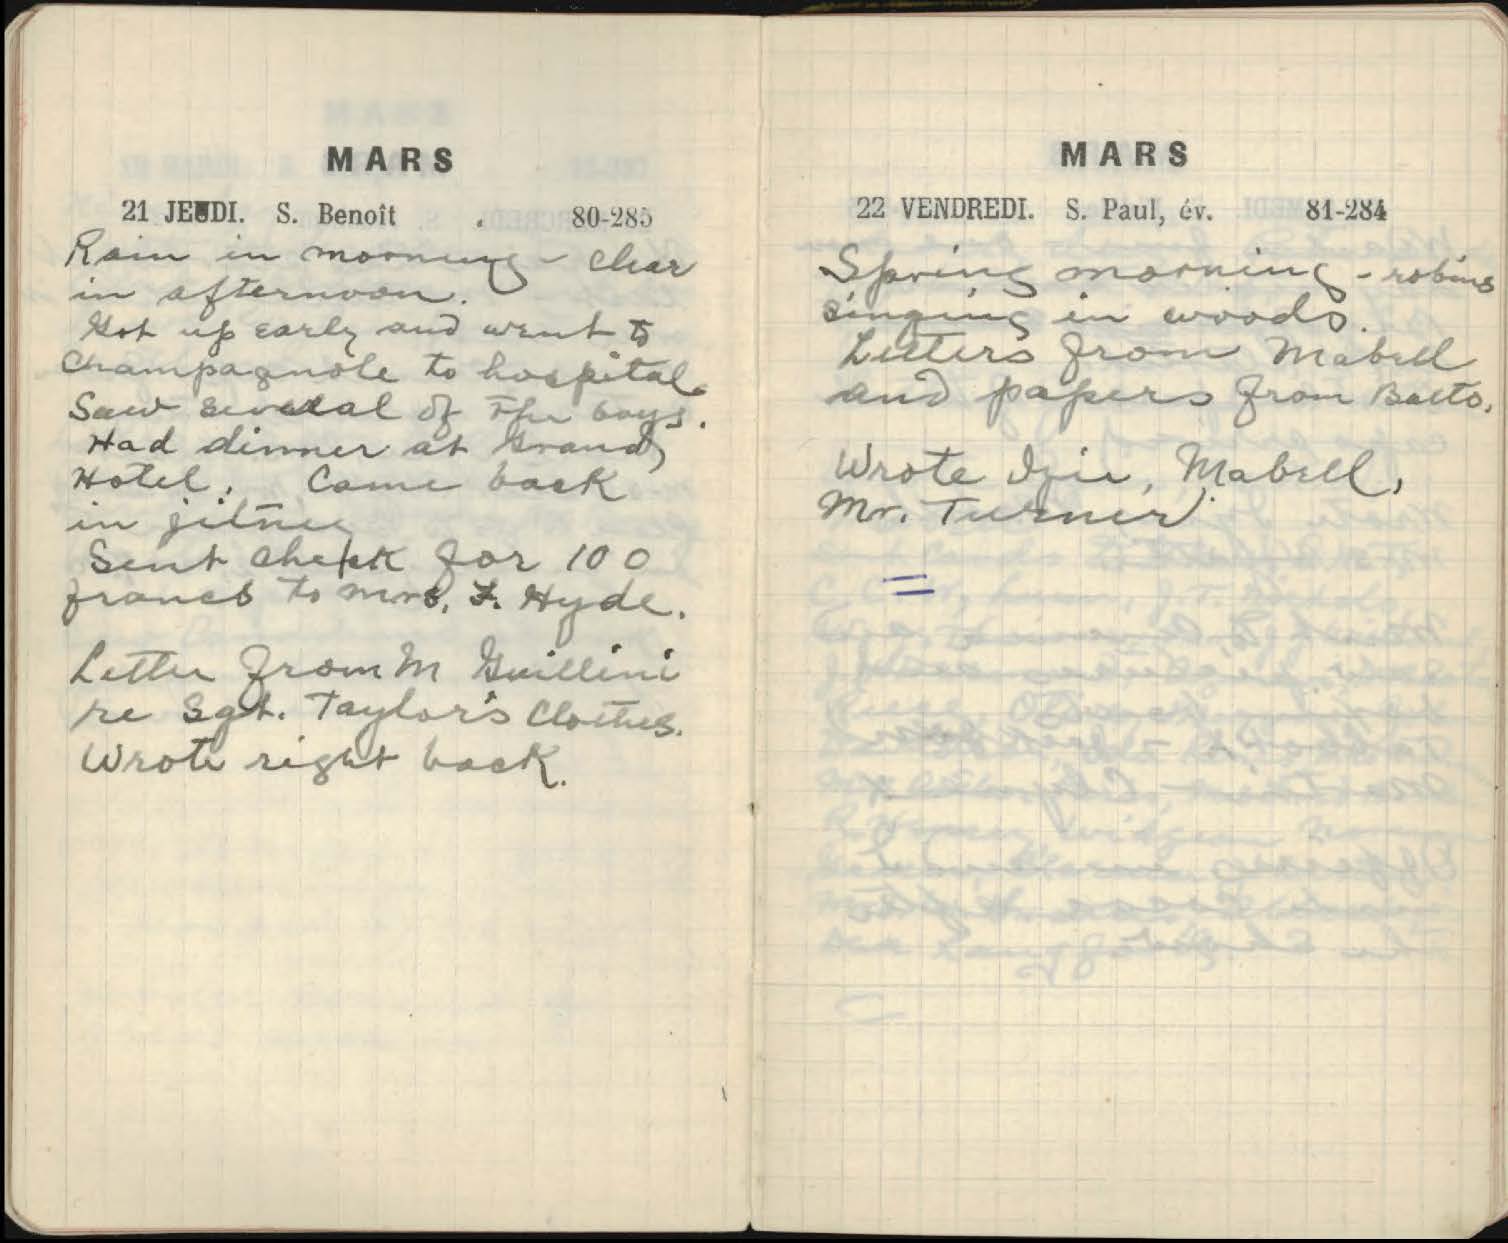 MARS
21 JEUDI. S. Benoît . 80-285
Rain in morning - clear
in afternoon.
Got up early and went to
Champagnole to hospital.
Saw several of the boys.
Had dinner at Grand
Hotel. Came back
in jitney
Sent check for 100
francs to Mrs. F. Hyde.
Letter from M Guillini
re Sgt. Taylor's Clothes.
Wrote right back.
MARS
22 VENDREDI. S. Paul, év. 81-284
Spring morning - robins
singing in woods.
Letters from Mabell
and papers from Balto.
Wrote Izie, Mabell,
Mr. Turner
=